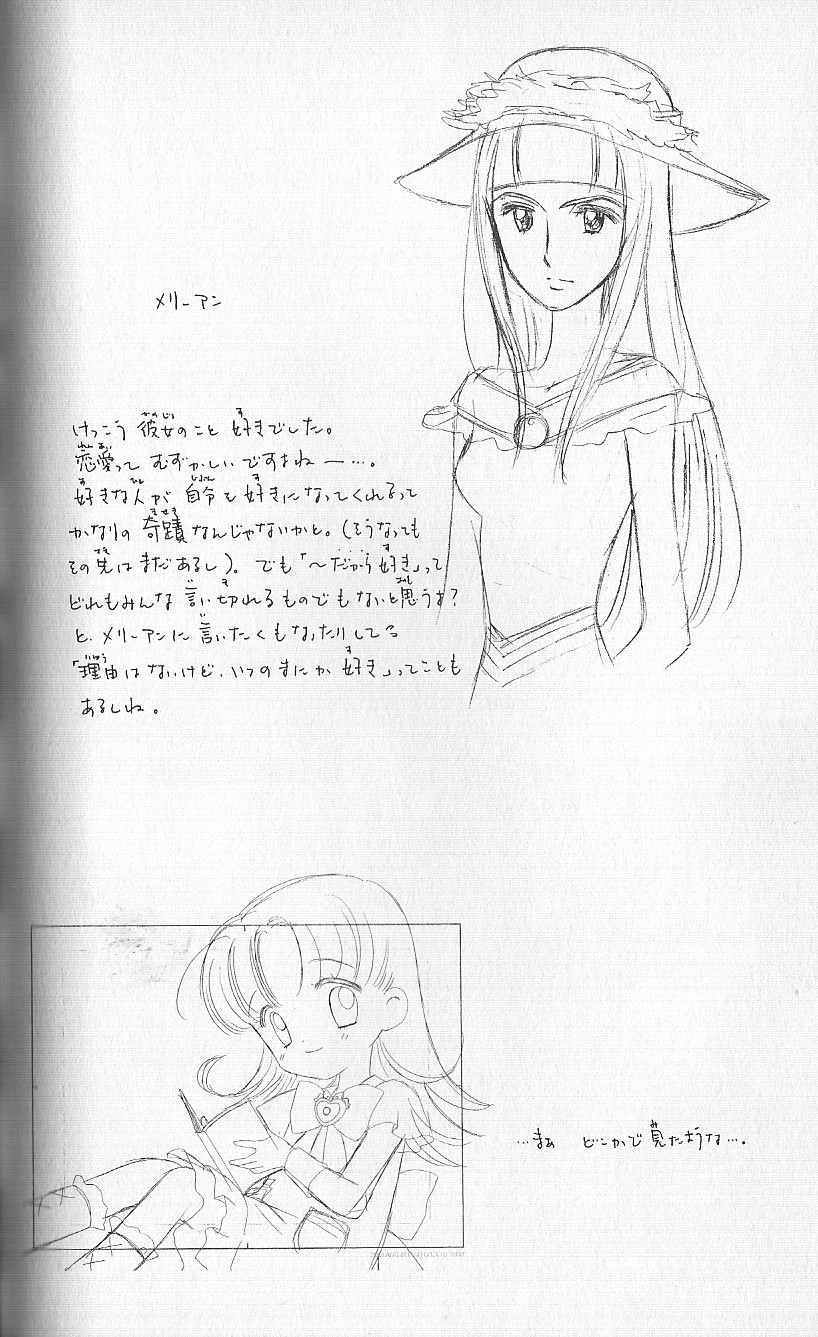 メリーアン
けっこう 彼女のこと 好きでした。
恋愛って むずかしいですよねー…。
好きな人が 自分を 好きになってくれるって
かなりの 奇蹟 なんじゃないかと。(そうなっても
その先は まだあるし)。でも「〜だから好き」って
どれもみんな 言い切れるものでもないと思うよ?
と、メリーアンに 言いたくもなったりしてる
「理由はないけど、いつのまにか 好き」ってことも
あるしね。
…まぁ どこかで 見たような…。